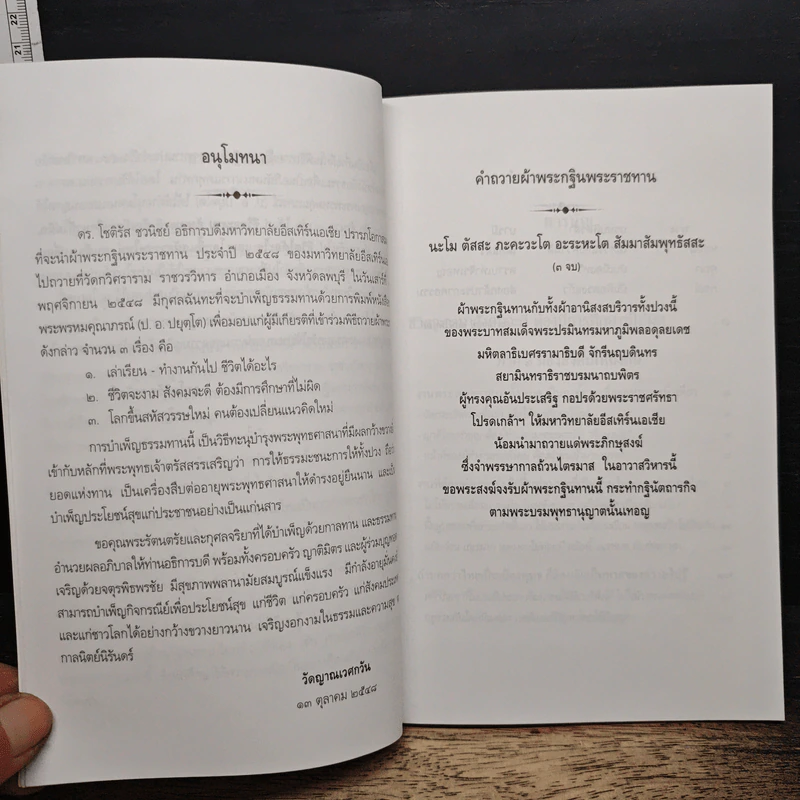 22
21
อนุโมทนา
ดร. โชติรัส ชวนิชย์ อธิการบดีมหาวิทยาลัยอีสเทิร์นเอเชีย ปรารภโอกาส
ที่จะนำผ้าพระกฐินพระราชทาน ประจำปี ๒๕๔๘ ของมหาวิทยาลัยอีสเทิร์น
ไปถวายที่วัดกวิศราราม ราชวรวิหาร อำเภอเมือง จังหวัดลพบุรี ในวันเสาร์ที่
พฤศจิกายน ๒๕๔๘ มีกุศลฉันทะที่จะบำเพ็ญธรรมทานด้วยการพิมพ์หนังสือ
พระพรหมคุณาภรณ์ (ป. อ. ปยุตฺโต) เพื่อมอบแก่ผู้มีเกียรติที่เข้าร่วมพิธีถวายผ้า
ดังกล่าว จำนวน ๓ เรื่อง คือ
๑. เล่าเรียน - ทำงานกันไป ชีวิตได้อะไร
๒. ชีวิตจะงาม สังคมจะดี ต้องมีการศึกษาที่ไม่ผิด
๓. โลกขึ้นสหัสวรรษใหม่ คนต้องเปลี่ยนแนวคิดใหม่
การบำเพ็ญธรรมทานนี้ เป็นวิธีทะนุบำรุงพระพุทธศาสนาที่มีผลกว้างขวาง
เข้ากับหลักที่พระพุทธเจ้าตรัสสรรเสริญว่า การให้ธรรมะชนะการให้ทั้งปวง ถือว่า
ยอดแห่งทาน เป็นเครื่องสืบต่ออายุพระพุทธศาสนาให้ดำรงอยู่ยืนนาน และเป็น
บำเพ็ญประโยชน์สุขแก่ประชาชนอย่างเป็นแก่นสาร
ขอคุณพระรัตนตรัยและกุศลจริยาที่ได้บำเพ็ญด้วยกาลทาน และธรรมทาน
อำนวยผลอภิบาลให้ท่านอธิการบดี พร้อมทั้งครอบครัว ญาติมิตร และผู้ร่วมบุญ
เจริญด้วยจตุรพิธพรชัย มีสุขภาพพลานามัยสมบูรณ์แข็งแรง มีกำลังอายุมั่นคง
สามารถบำเพ็ญกิจกรณีย์เพื่อประโยชน์สุข แก่ชีวิต แก่ครอบครัว แก่สังคมประเทศ
และแก่ชาวโลกได้อย่างกว้างขวางยาวนาน เจริญงอกงามในธรรมและความสุข
กาลนิตย์นิรันดร์
วัดญาณเวศกวัน
๑๓ ตุลาคม ๒๕๔๘
คำถวายผ้าพระกฐินพระราชทาน
นะโม ตัสสะ ภะคะวะโต อะระหะโต สัมมาสัมพุทธัสสะ
(๓ จบ)
ผ้าพระกฐินทานกับทั้งผ้าอานิสงสบริวารทั้งปวงนี้
ของพระบาทสมเด็จพระปรมินทรมหาภูมิพลอดุลยเดช
มหิตลาธิเบศรรามาธิบดี จักรีนฤบดินทร
สยามินทราธิราชบรมนาถบพิตร
ผู้ทรงคุณอันประเสริฐ กอปรด้วยพระราชศรัทธา
โปรดเกล้าฯ ให้มหาวิทยาลัยอีสเทิร์นเอเชีย
น้อมนำมาถวายแด่พระภิกษุสงฆ์
ซึ่งจำพรรษากาลถ้วนไตรมาส ในอาวาสวิหารนี้
ขอพระสงฆ์จงรับผ้าพระกฐินทานนี้ กระทำกฐินัตถารกิจ
ตามพระบรมพุทธานุญาตนั้นเทอญ